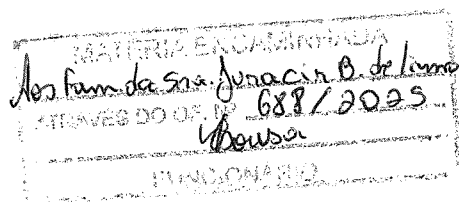 MATÉRIA ENCAMINHADA
Aos Fam. da Sra. Juracir B. de Lima
ATRAVÉS DO OF. Nº 688/2025
FUNCIONÁRIO